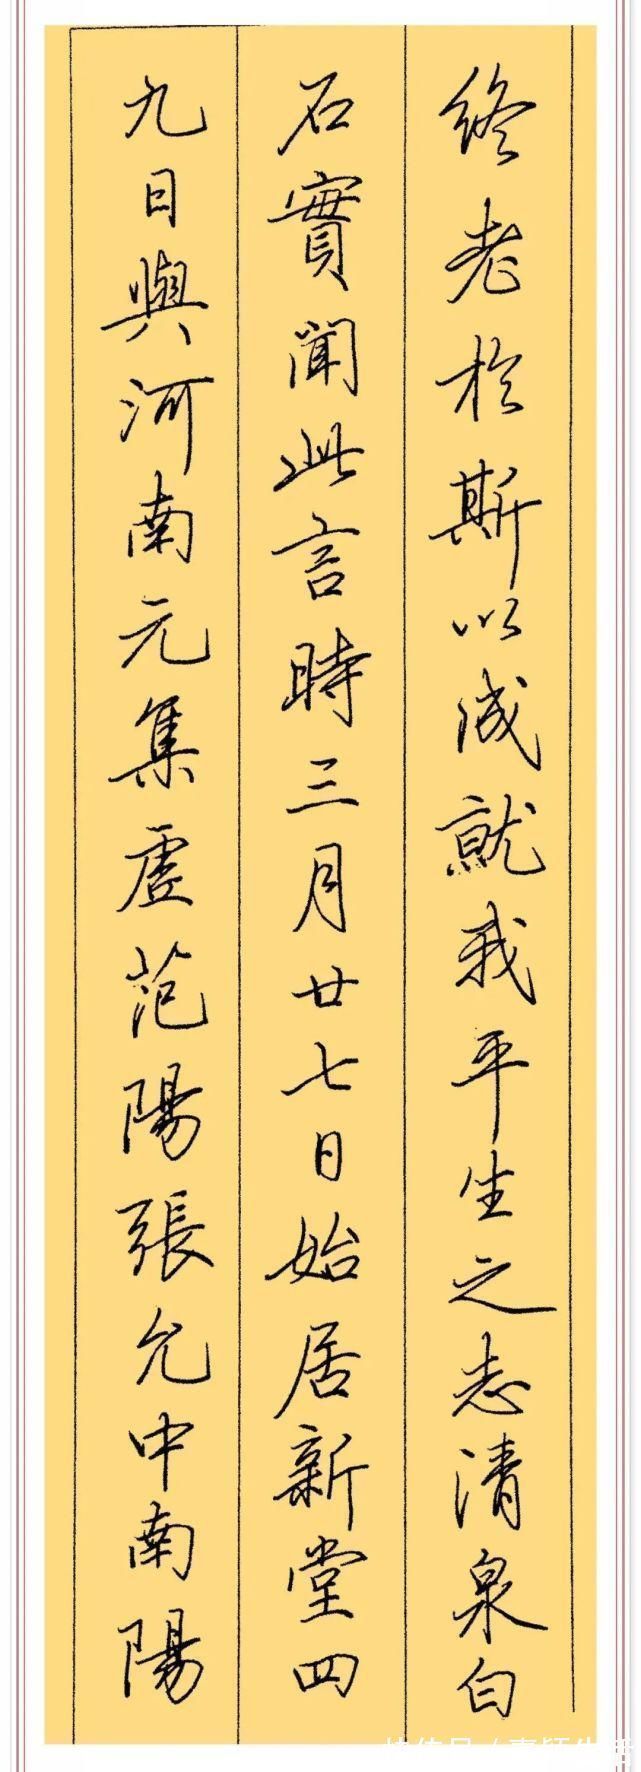 終老於斯以成就我平生之志清泉白
石實聞此言時三月廿七日始居新堂四
九日與河南元集虛范陽張允中南陽